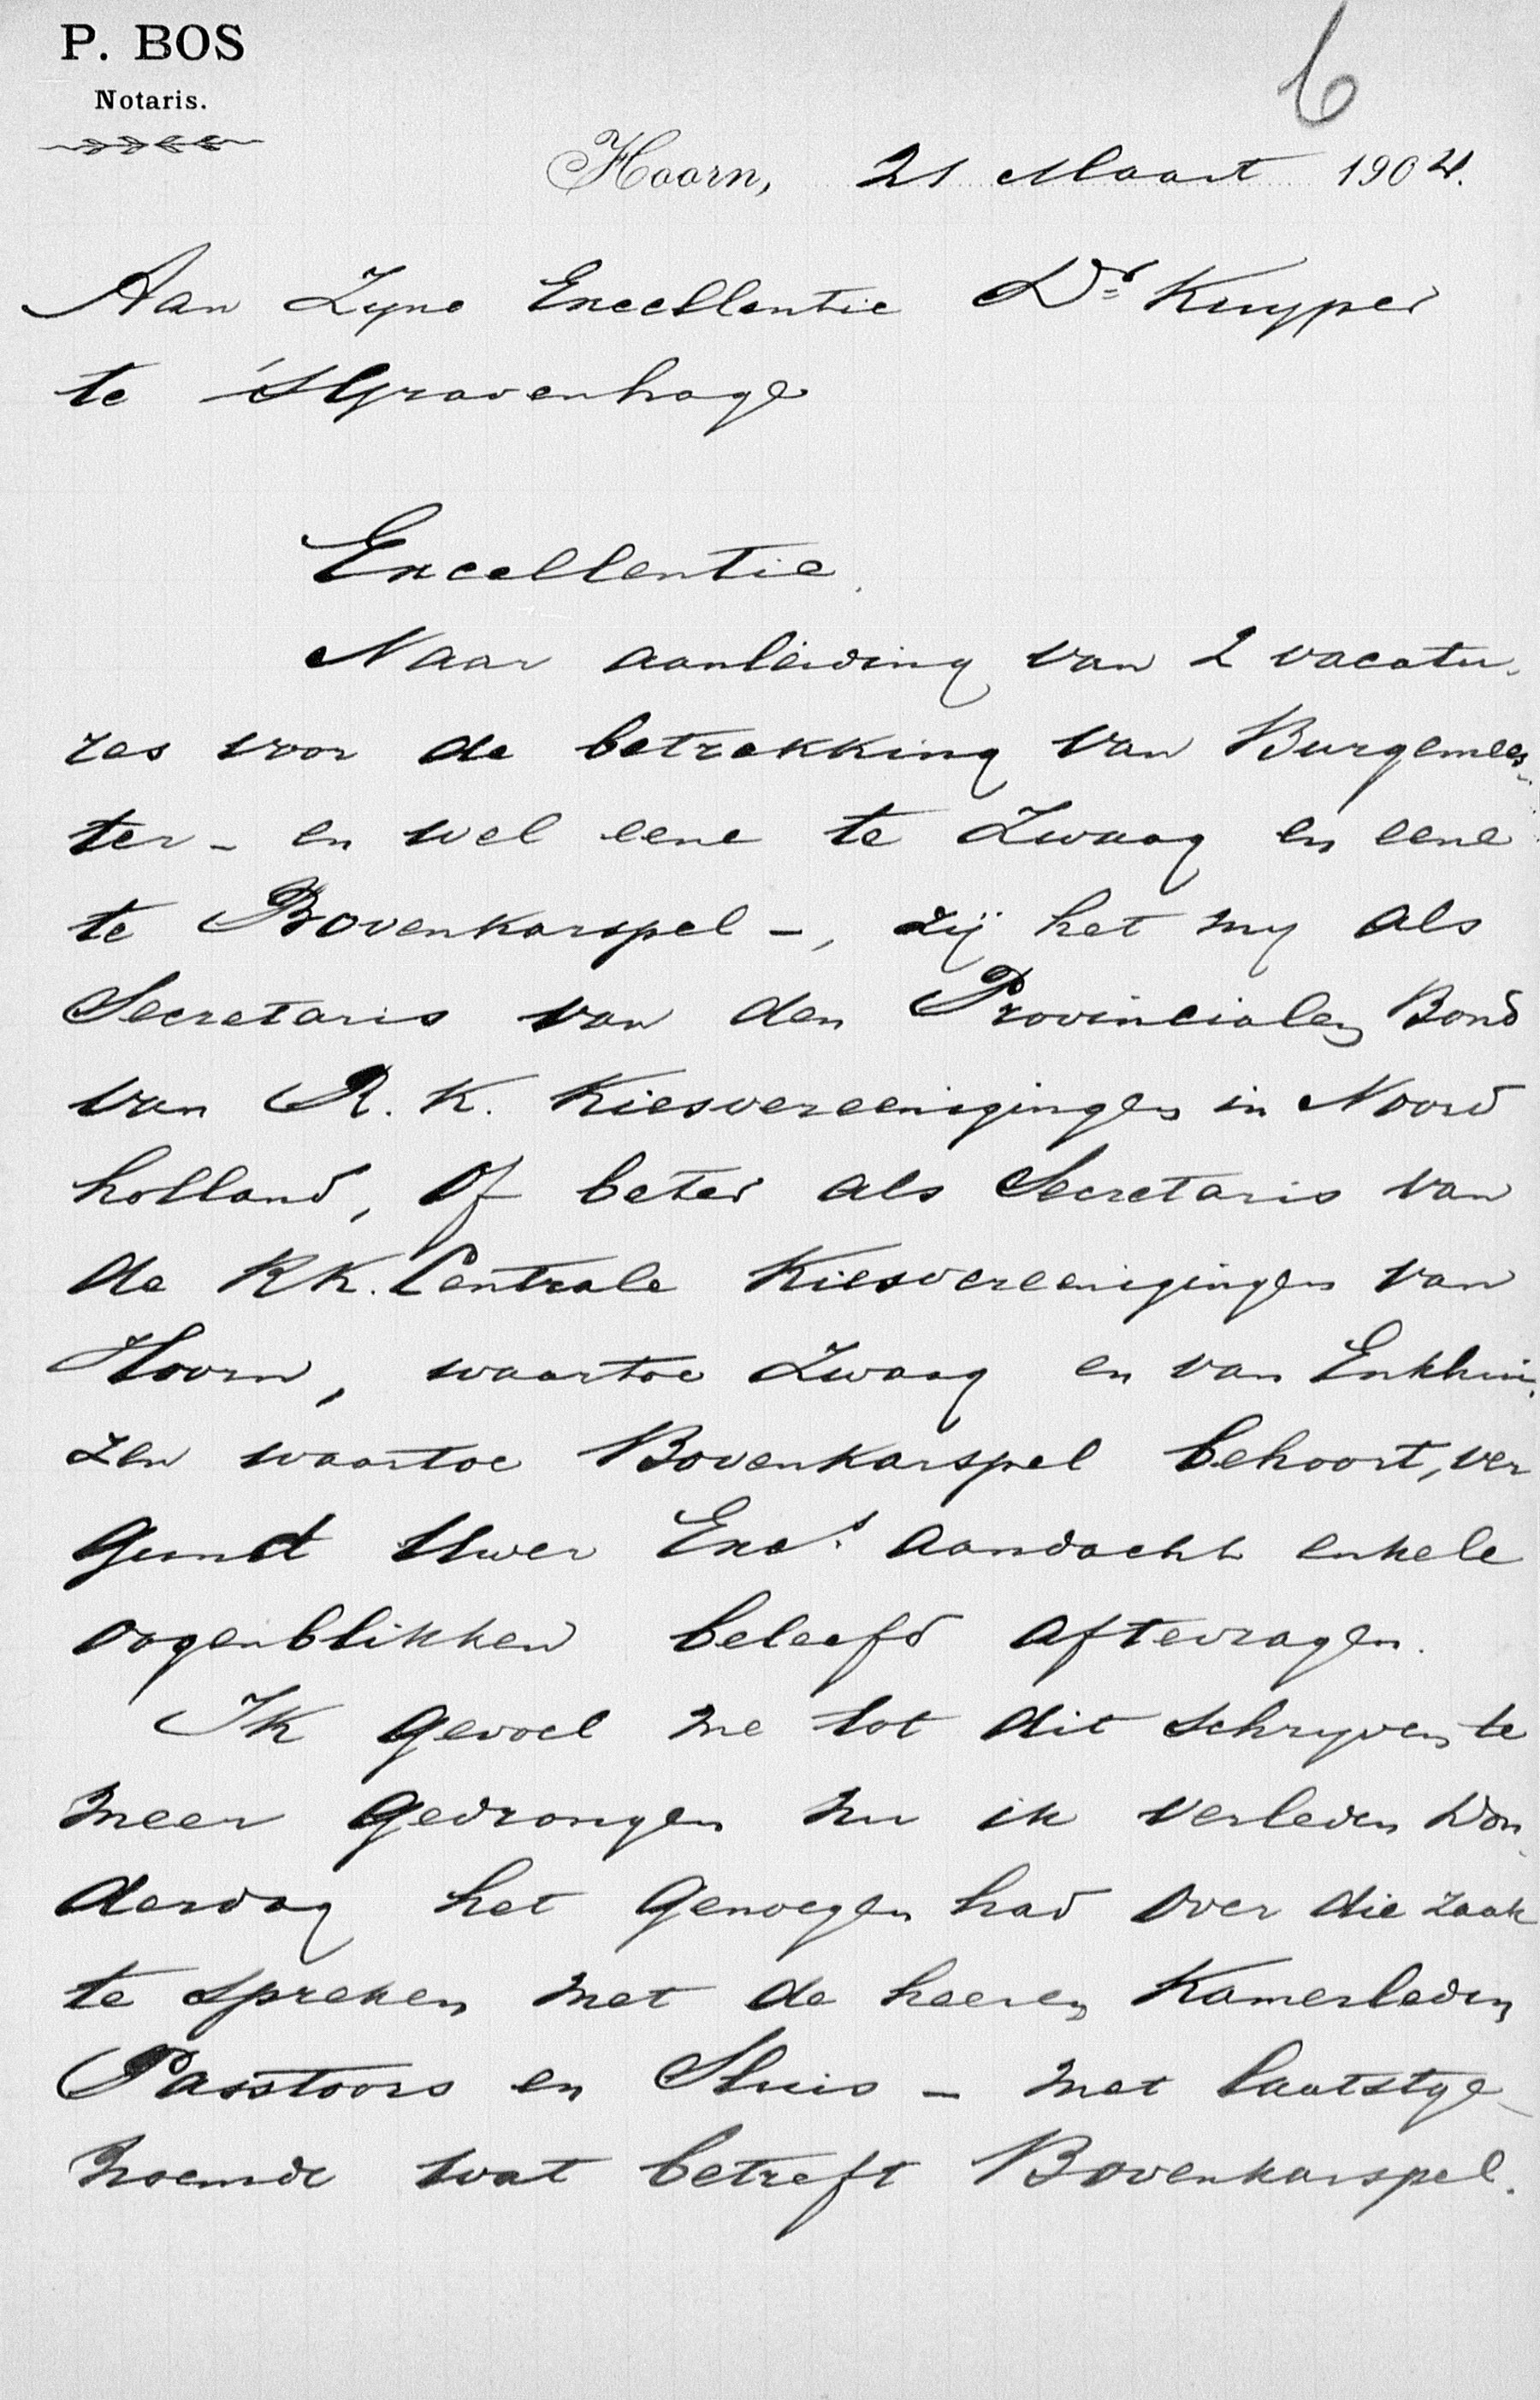 P. BOS
Notaris.
6
Hoorn, 21 Maart 1904.
Aan Zyne Excellentie Dr Kuyper
te 'sGravenhage
Excellentie.
Naar aanleiding van 2 vacatu-
res voor de betrekking van Burgemees-
ter - en wel eene te Zwaag en eene
te Bovenkarspel -, zij het my als
Secretaris van den Provincialen Bond
van R. K. Kiesvereenigingen in Noord
holland, of beter als Secretaris van
de RK. Centrale Kiesvereenigingen van
Hoorn, waartoe Zwaag en van Enkhui-
zen waartoe Bovenkarspel behoort, ver
gund Uwer Exc.s aandacht enkele
oogenblikken beleefd aftevragen.
Ik gevoel me tot dit schryven te
meer gedrongen nu ik verleden Don-
derdag het genoegen had over die zaak
te spreken met de heeren Kamerleden
Passtoors en Sluis - met laatstge-
noemde wat betreft Bovenkarspel.